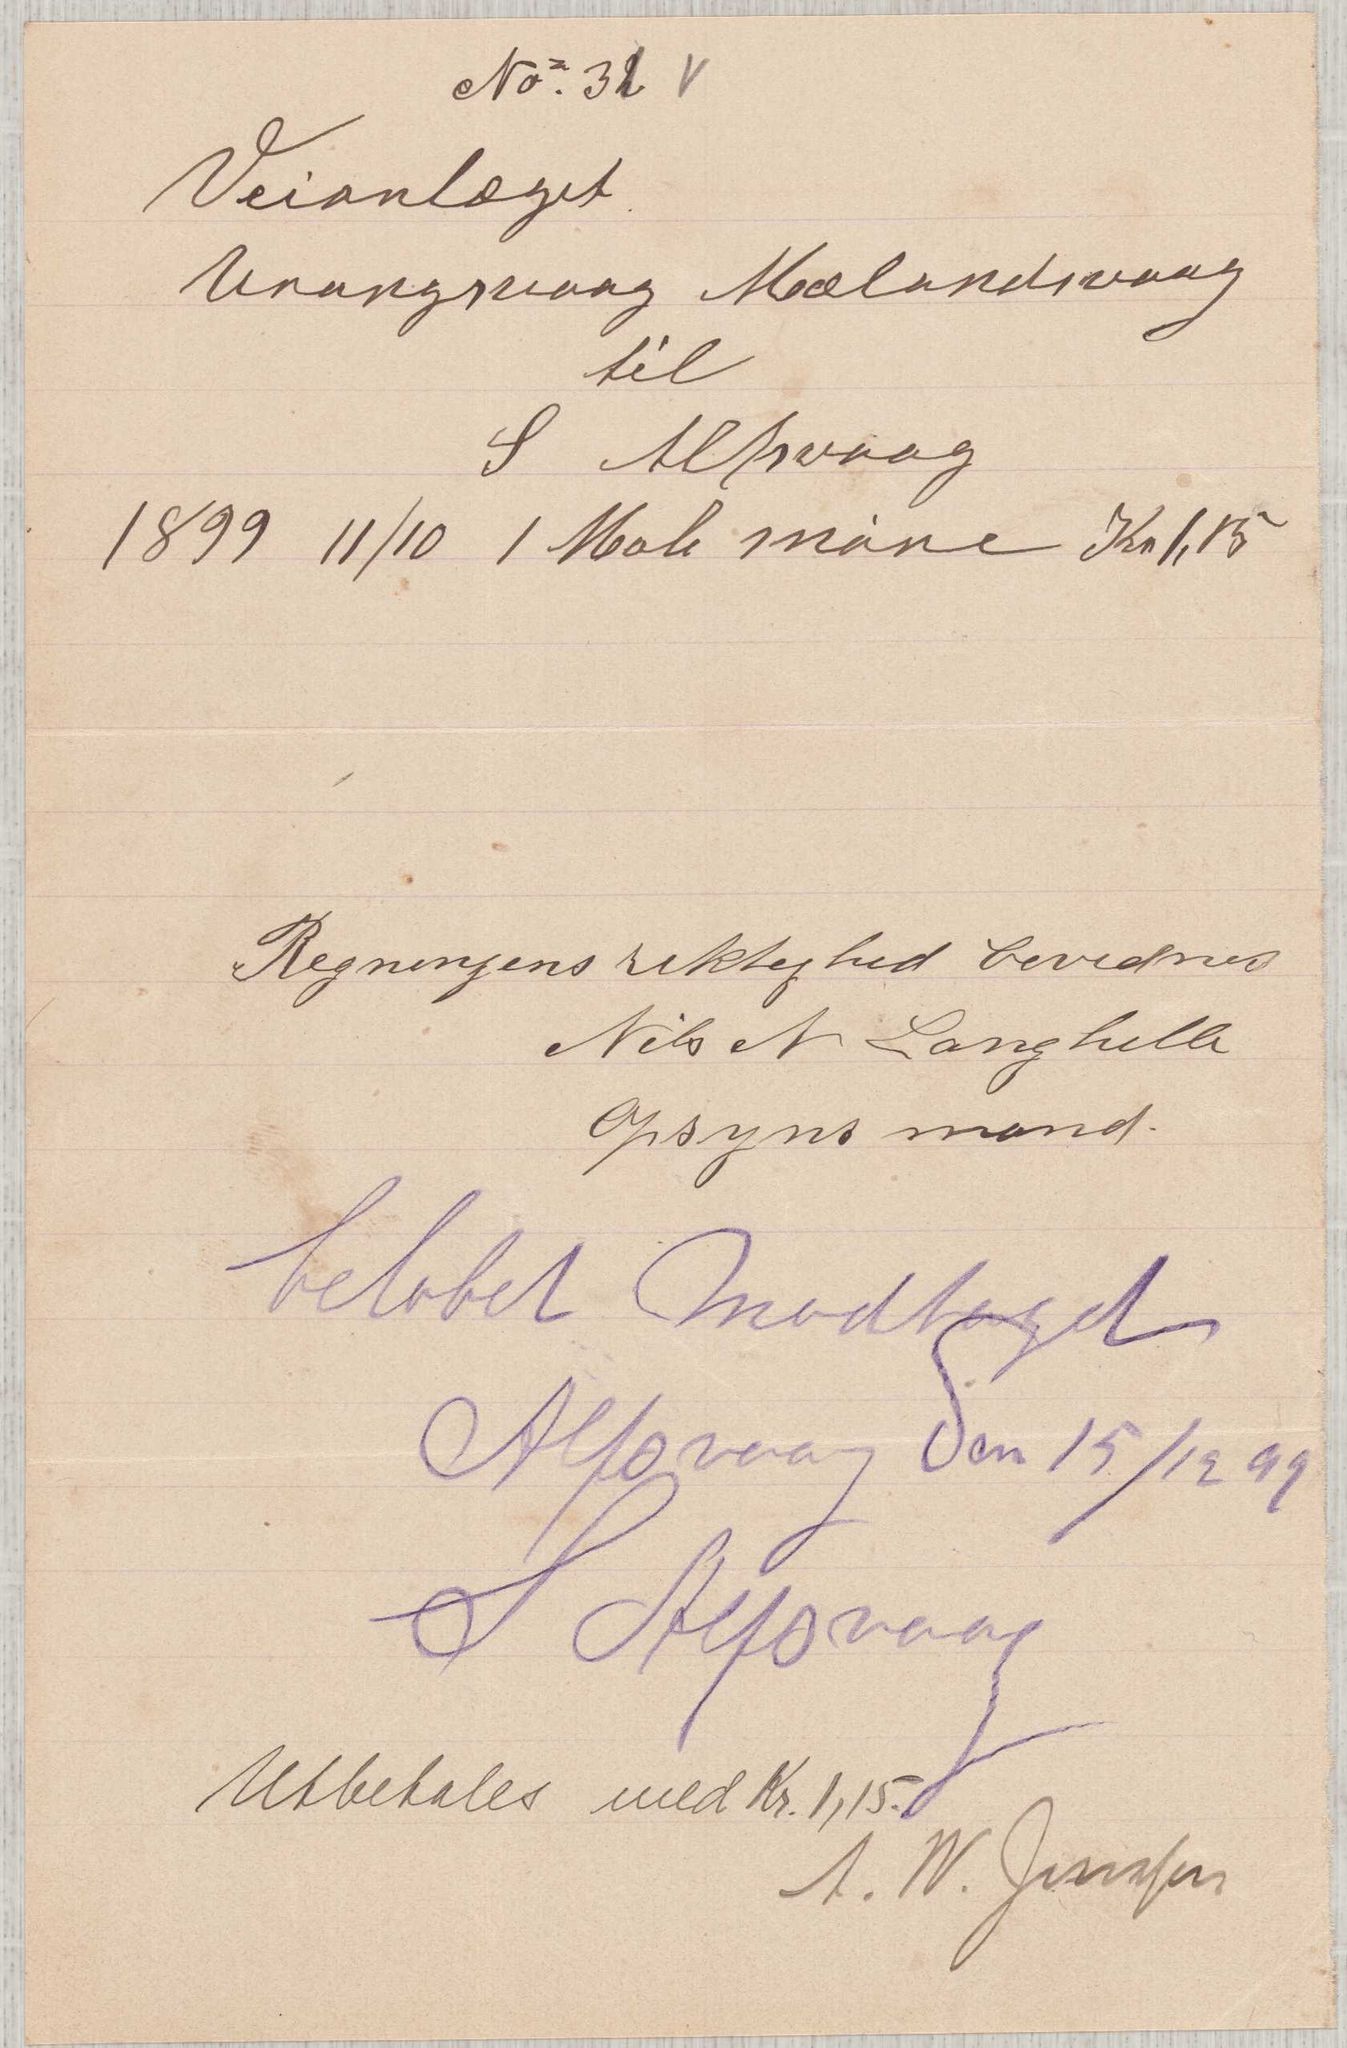 No. 31 V
Veianlæget
Urangsvaag Mælandsvaag
til
S Alfsvaag
1899 11/10 1 Mole Kr 1,15
Regningens riktighed bevidnes
Nils N Langhelle
Opsyns mand.
beløbet Modtaget
Alfsvaag Den 15/12 99
S Alfsvaag
Utbetales med Kr. 1,15.
A. W. Jenssen